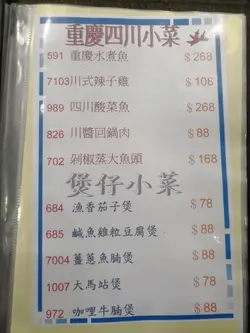 重慶四川小菜
591 重慶水煮魚 $268
7103 川式辣子雞 $108
989 四川酸菜魚 $268
826 川醬回鍋肉 $88
702 剁椒蒸大魚頭 $168
煲仔小菜
684 漁香茄子煲 $78
685 鹹魚雞粒豆腐煲 $88
7004 薑蔥魚腩煲 $88
1007 大馬站煲 $78
972 咖哩牛腩煲 $88